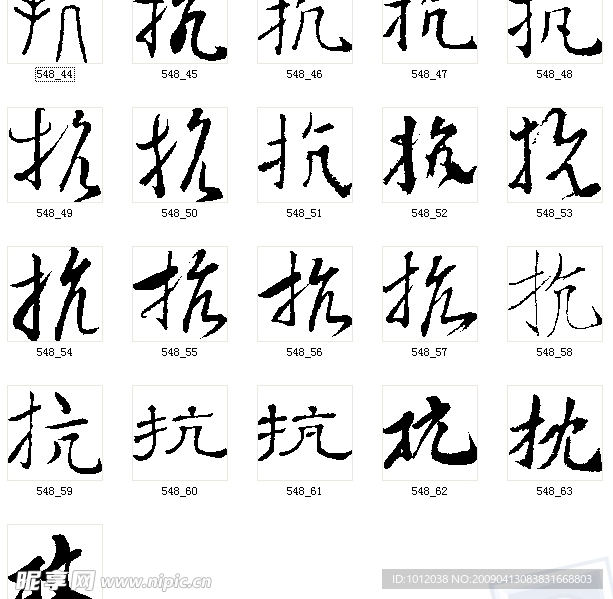 抗 抗 抗 抗 抗
548_44 548_45 548_46 548_47 548_48
抗 抗 抗 抗 抗
548_49 548_50 548_51 548_52 548_53
抗 抗 抗 抗 抗
548_54 548_55 548_56 548_57 548_58
抗 抗 抗 抗 抗
548_59 548_60 548_61 548_62 548_63
昵享网 www.nipic.cn
ID:1012038 NO:20090413083831668803